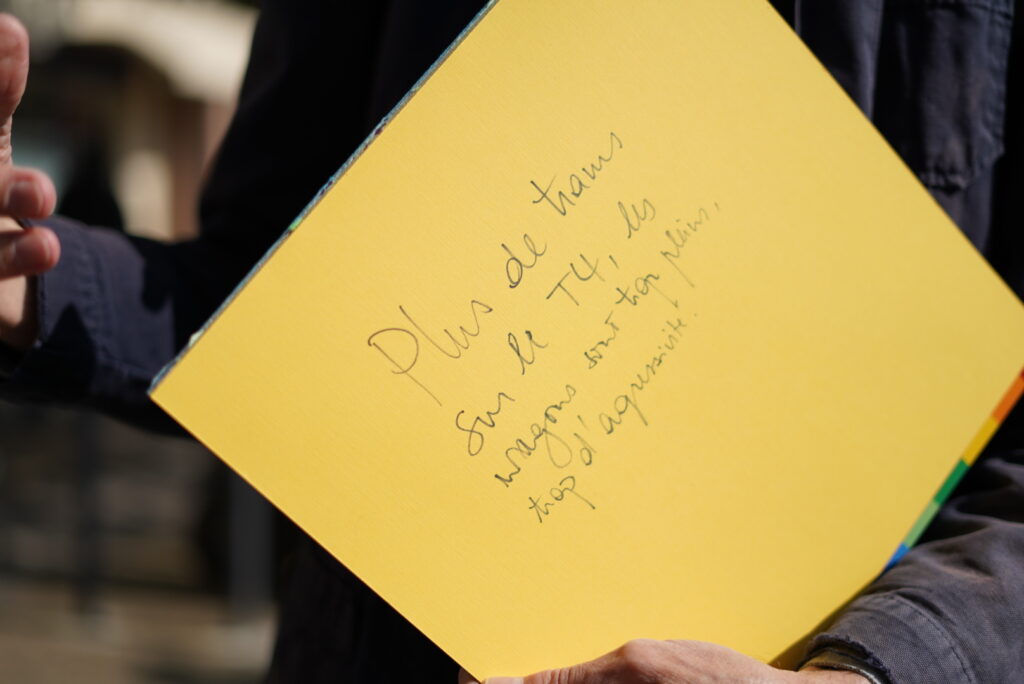 Plus de trams
sur le T4, les
wagons sont trop pleins,
trop d'agressivité.